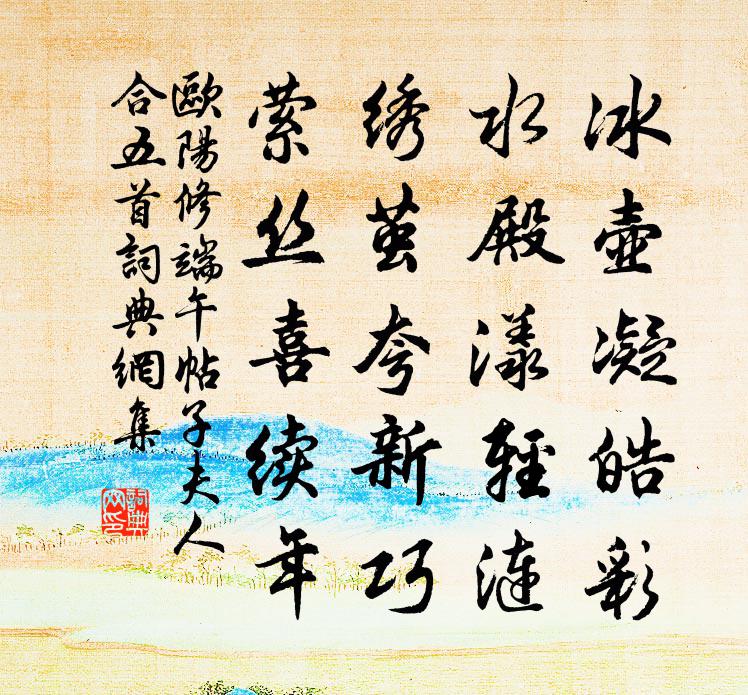 冰壺凝皓彩
水殿漾輕漣
绣茧夸新巧
萦丝喜续年
歐陽修端午帖子夫人
合五首詞典網集
詞典
网印